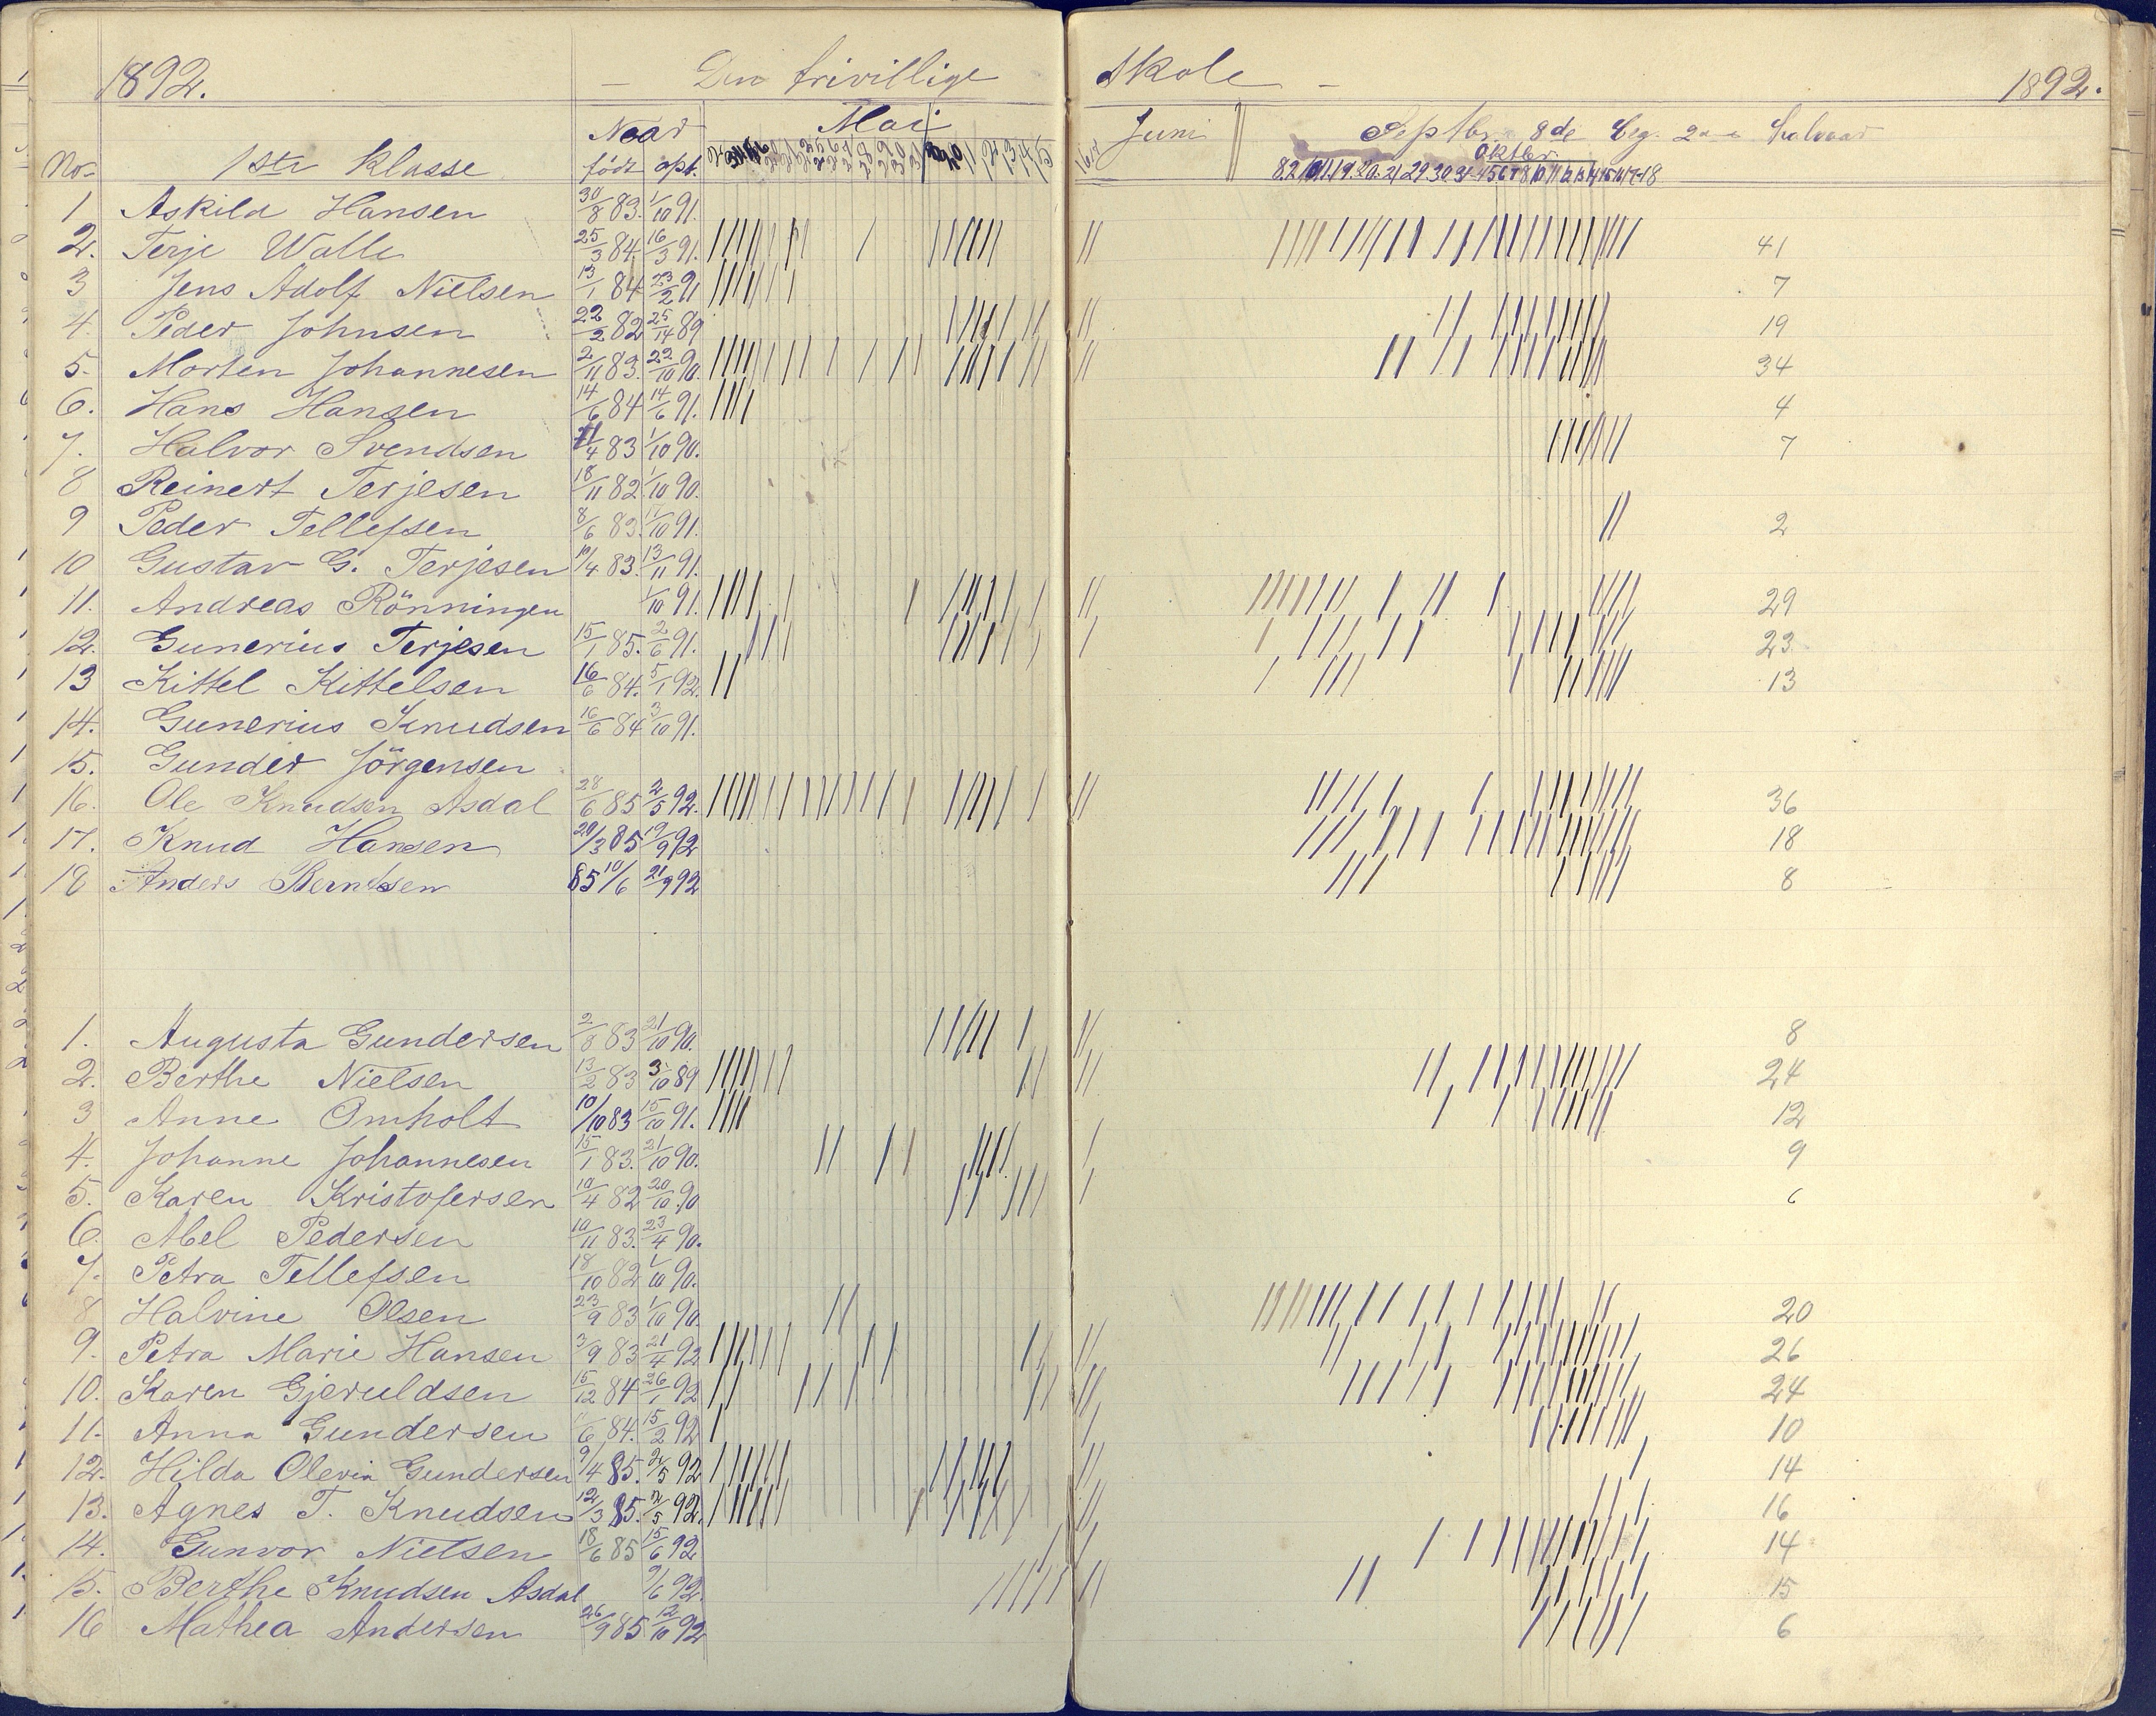 1892. — Den frivillige Skole — 1892.
Naar Mai Juni Septbr 8de beg. 2det halvaar
No. 1ste Klasse født opt. Oktbr
1 Askild Hansen 30/8 83. 1/10 91.
2. Terje Walle 25/3 84. 16/3 91. 41
3 Jens Adolf Nielsen 13/1 84 23/2 91 7
4. Peder Johnsen 22/2 82 25/14 89 19
5. Morten Johannesen 2/11 83. 22/10 90. 34
6. Hans Hansen 14/6 84 14/6 91. 4
7. Halvor Svendsen 21/4 83 1/10 90. 7
8 Reinert Terjesen 18/11 82 1/10 90.
9 Peder Tellefsen 8/6 83. 17/10 91. 2
10 Gustav G. Terjesen 10/4 83. 13/11 91.
11. Andreas Rönningen 1/10 91. 29
12. Gunerius Terjesen 15/1 85. 2/6 91. 23
13 Kittel Kittelsen 16/6 84. 5/1 92. 13
14. Gunerius Knudsen 16/6 84 3/10 91.
15. Gunder Jörgensen
16. Ole Knudsen Asdal 28/6 85 2/5 92. 36
17. Knud Hansen 20/3 85 19/9 92 18
18 Anders Berntsen 85 10/6 21/9 92 8
1. Augusta Gundersen 2/8 83 21/10 90. 8
2. Berthe Nielsen 13/2 83 3/10 89 24
3 Anne Omholt 10/10 83 15/10 91. 12
4. Johanne Johannesen 15/1 83. 21/10 90. 9
5. Karen Kristofersen 10/4 82 20/10 90 6
6. Abel Pedersen 10/11 83. 23/4 90.
7. Petra Tellefsen 18/10 82 1/10 90.
8 Halvine Olsen 23/9 83 1/10 90. 20
9. Petra Marie Hansen 3/9 83 21/4 92 26
10. Karen Gjeruldsen 15/12 84 26/1 92 24
11. Anna Gundersen 84. 15/2 92 10
12. Hilda Olevia Gundersen 9/4 85. 2/5 92 14
13. Agnes T. Knudsen 12/3 85. 2/5 92. 16
14. Gunvor Nielsen 18/6 85 15/6 92 14
15. Berthe Knudsen Asdal 9/6 92. 15
16 Mathea Andersen 26/9 85 12/10 92 6